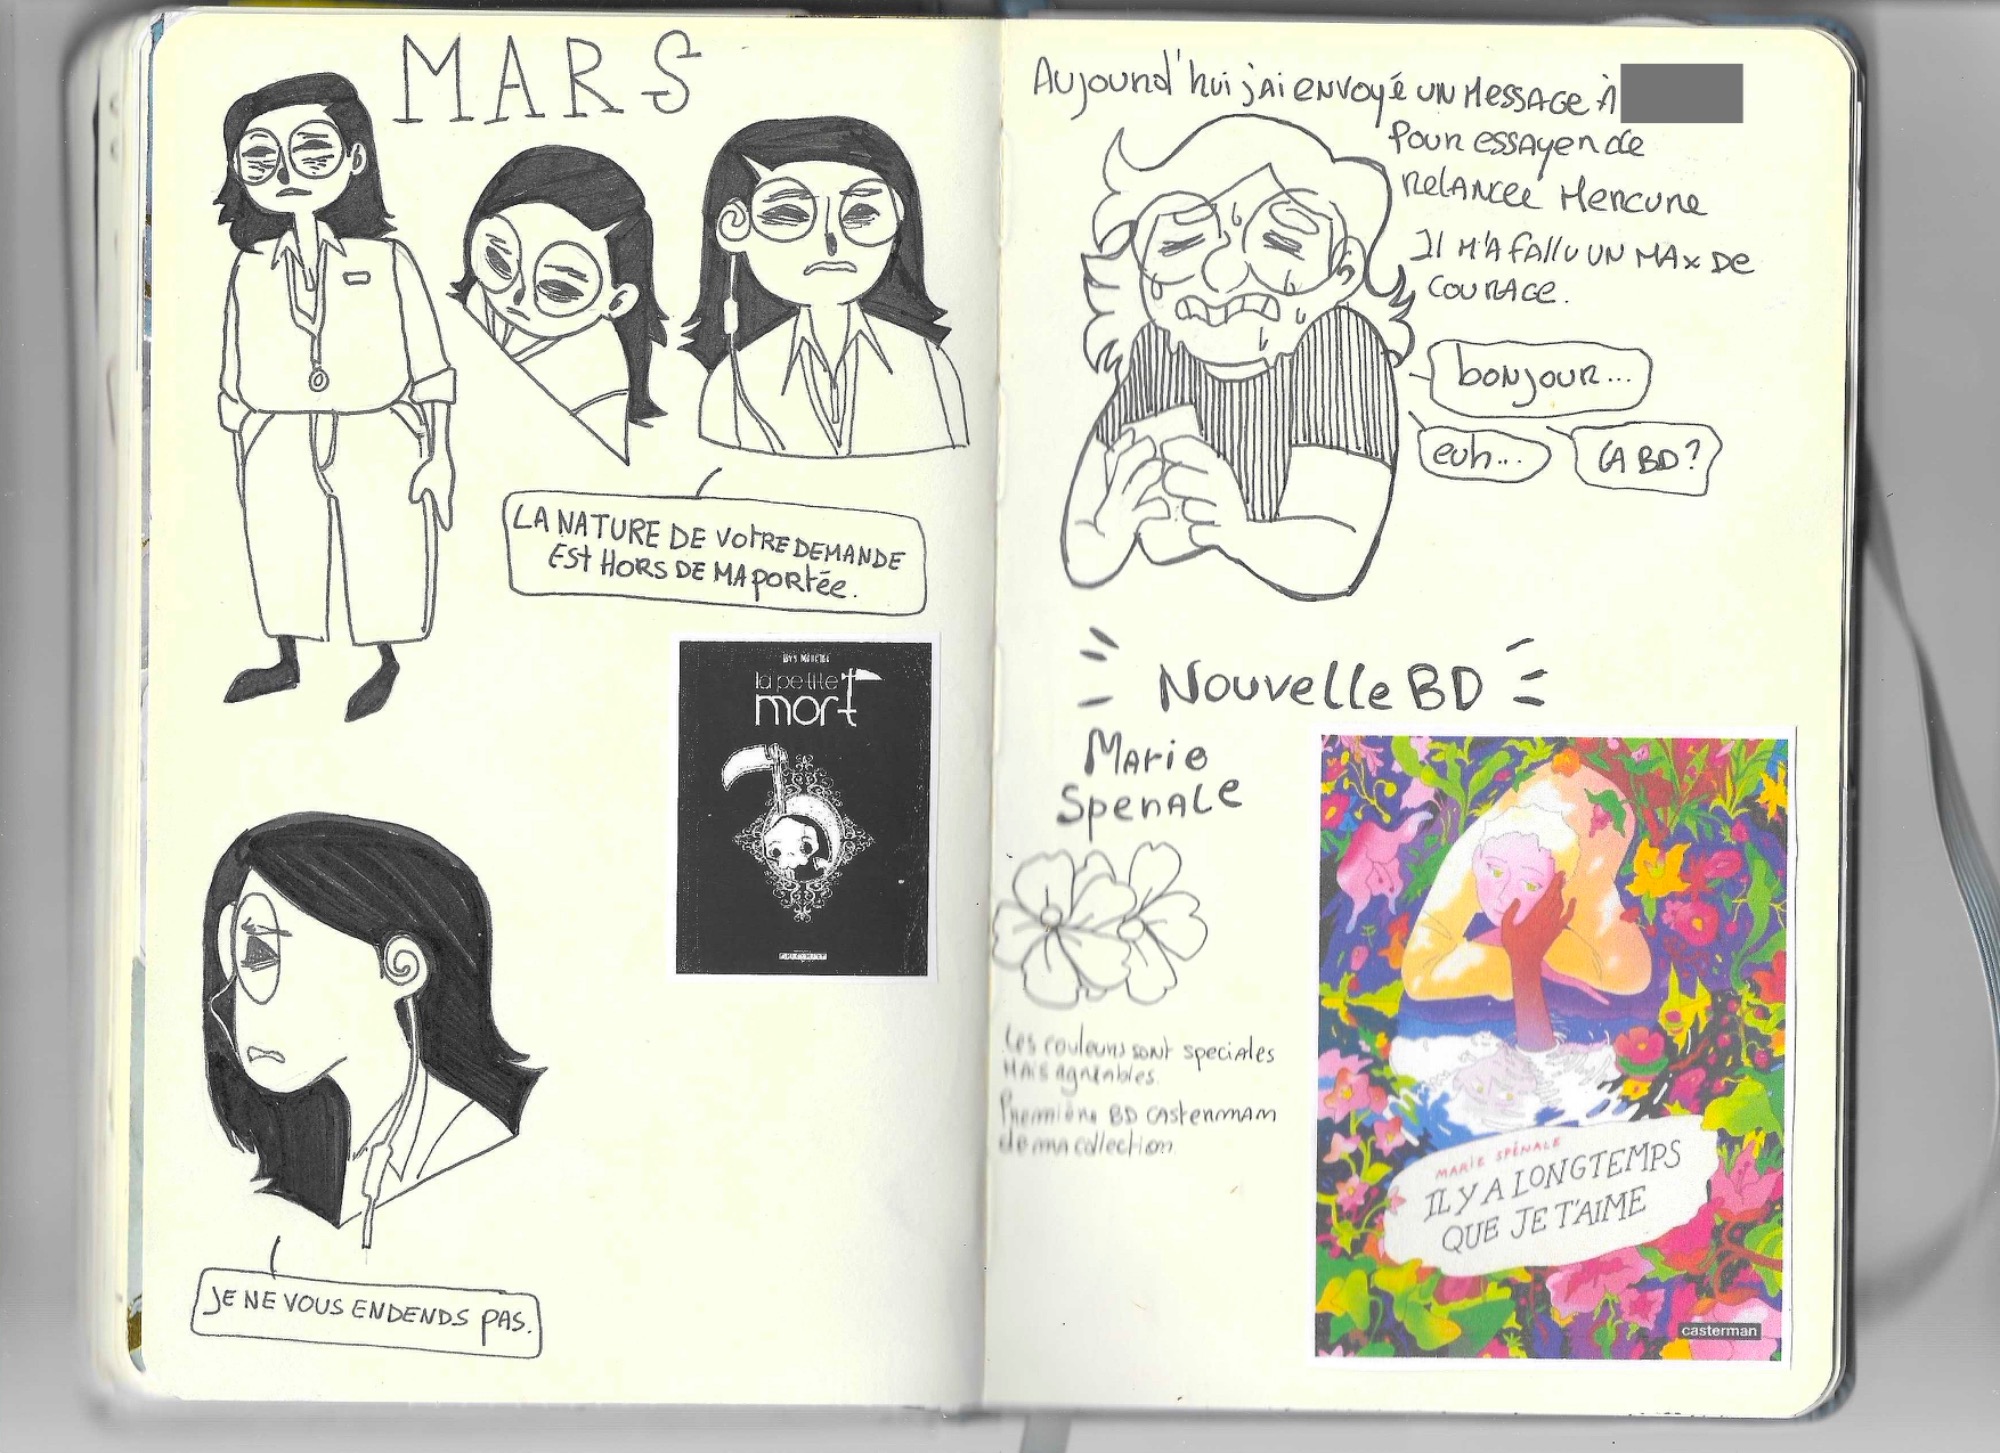 MARS
LA NATURE DE VOTRE DEMANDE
EST HORS DE MA PORTÉE.
la petite
mort
JE NE VOUS ENDENDS PAS.
Aujourd'hui j'ai envoyé un message à
pour essayer de
relancer Mercure
Il m'a fallu un max de
courage.
bonjour...
euh...
ça BD?
Nouvelle BD
Marie
Spenale
Les couleurs sont speciales
mais agréables.
Première BD Castermam
de ma collection.
MARIE SPÉNALE
IL Y A LONGTEMPS
QUE JE T'AIME
casterman